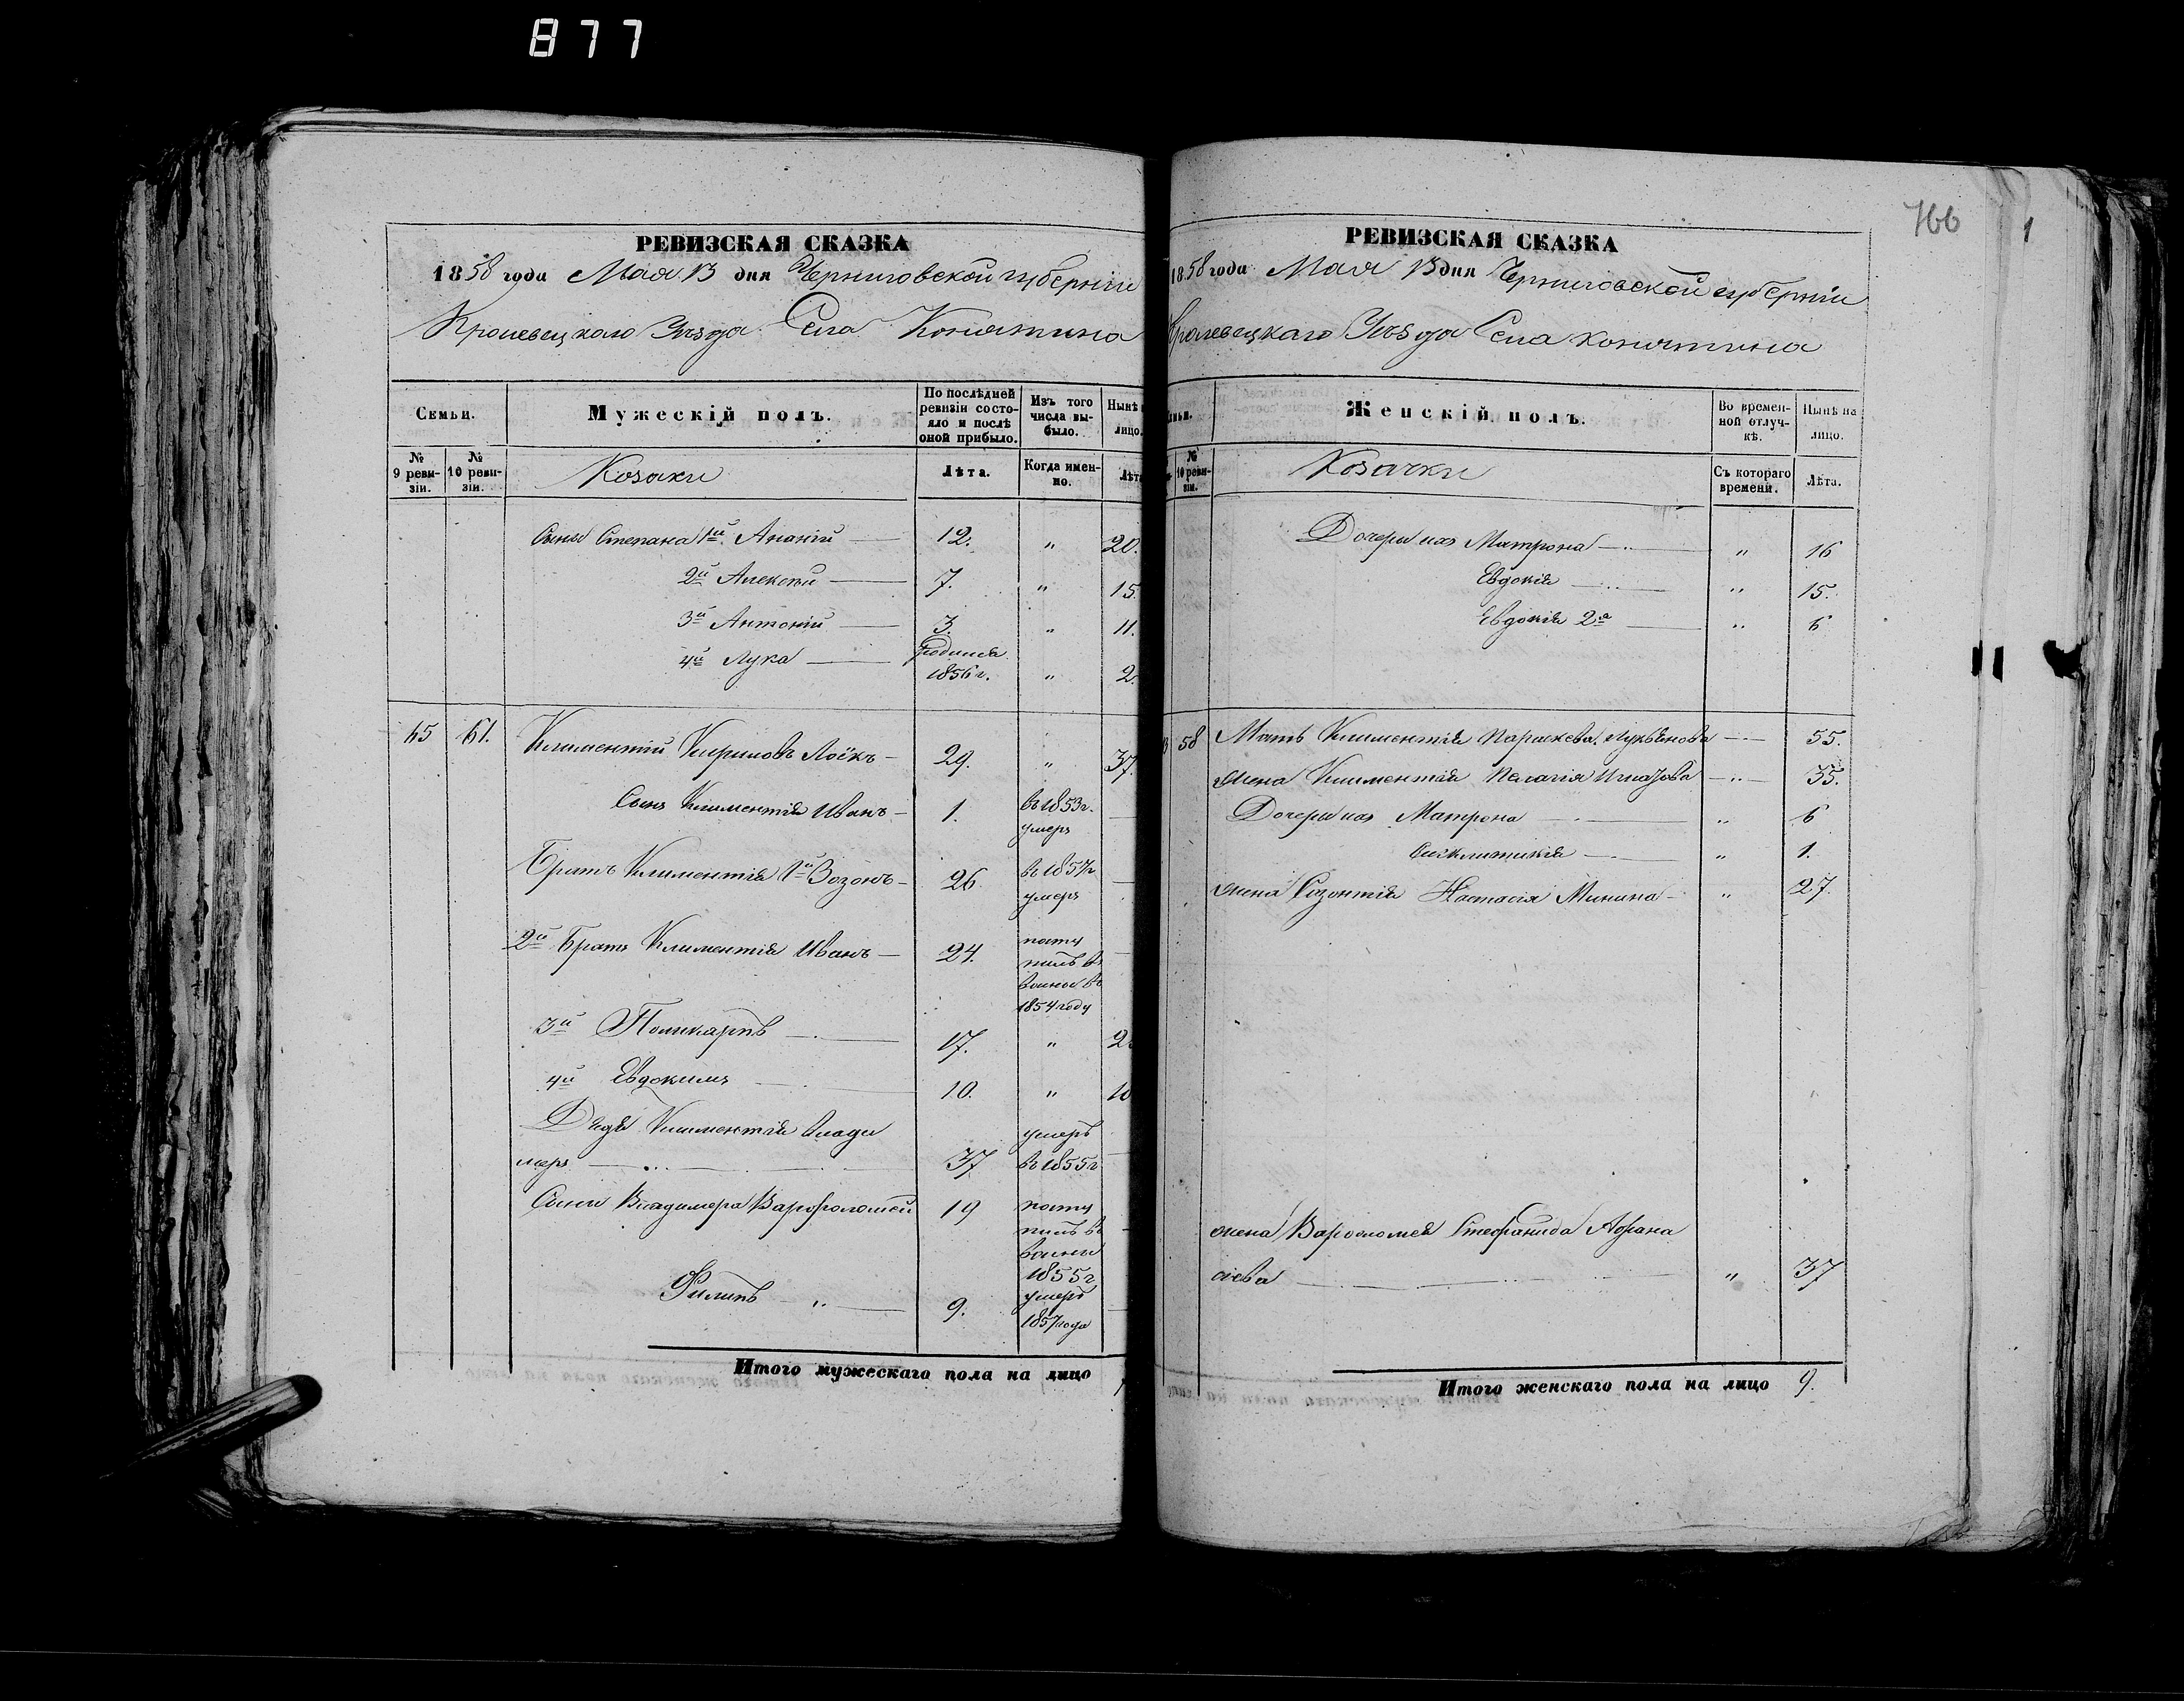 877
РЕВИЗСКАЯ СКАЗКА
1858 года Мая 13 дня Черниговской губернии
Кролевецкаго Уѣзда Села Конятина
Семьи.
Мужескій полъ.
По послѣдней ревизіи состояло и послѣ оной прибыло.
Изъ того числа выбыло.
Нынѣ
лицо.
№ 9 ревизіи.
№ 10 ревизіи.
Козаки
Лѣта.
Когда именно.
Лѣта
Сыны Степана 1й Ананій 12. " 20.
2й Алексѣй 7. " 15.
3й Антоній 3. " 11.
4й Лука родился 1856 г. " 2.
45 61. Климентій Кириловъ 29. " 37.
Сынъ Климентія Иванъ 1. въ 1853 г. умеръ
Братъ Климентія 1й Зозонъ 26. въ 1857 г. умеръ
2й Братъ Климентія Иванъ 24. поступилъ въ 1854 году
3й Поликарпъ 17. " 2
4й Евдокимъ 10. "
Дядя Климентія Влади
меръ 37 умеръ въ 1855 г.
Сыни Владимера Варфоломей 19 поступилъ въ 1855 г.
Филипъ " 9. умеръ 1857 года
Итого мужескаго пола на лицо
766
1
РЕВИЗСКАЯ СКАЗКА
1858 года Мая 13 дня Черниговской губерніи
Кролевецкаго Уѣзда Села Конятина
Женскій полъ.
Во временной отлучкѣ.
Нынѣ на лицо.
№ 10 ревизіи.
Козачки
Съ котораго времени.
Лѣта.
Дочери их Матрона " 16
Евдокія " 15.
Евдокія 2я " 6
58 Мать Климентія Параскева Лукьянова 55.
жена Климентія Пелагія Игнатова 35.
Дочери их Матрона " 6
" 1.
жена Созонтія Настасія Минина " 27.
жена Варфоломея Стефанида Афана
сіева " 37
Итого женскаго пола на лицо 9.